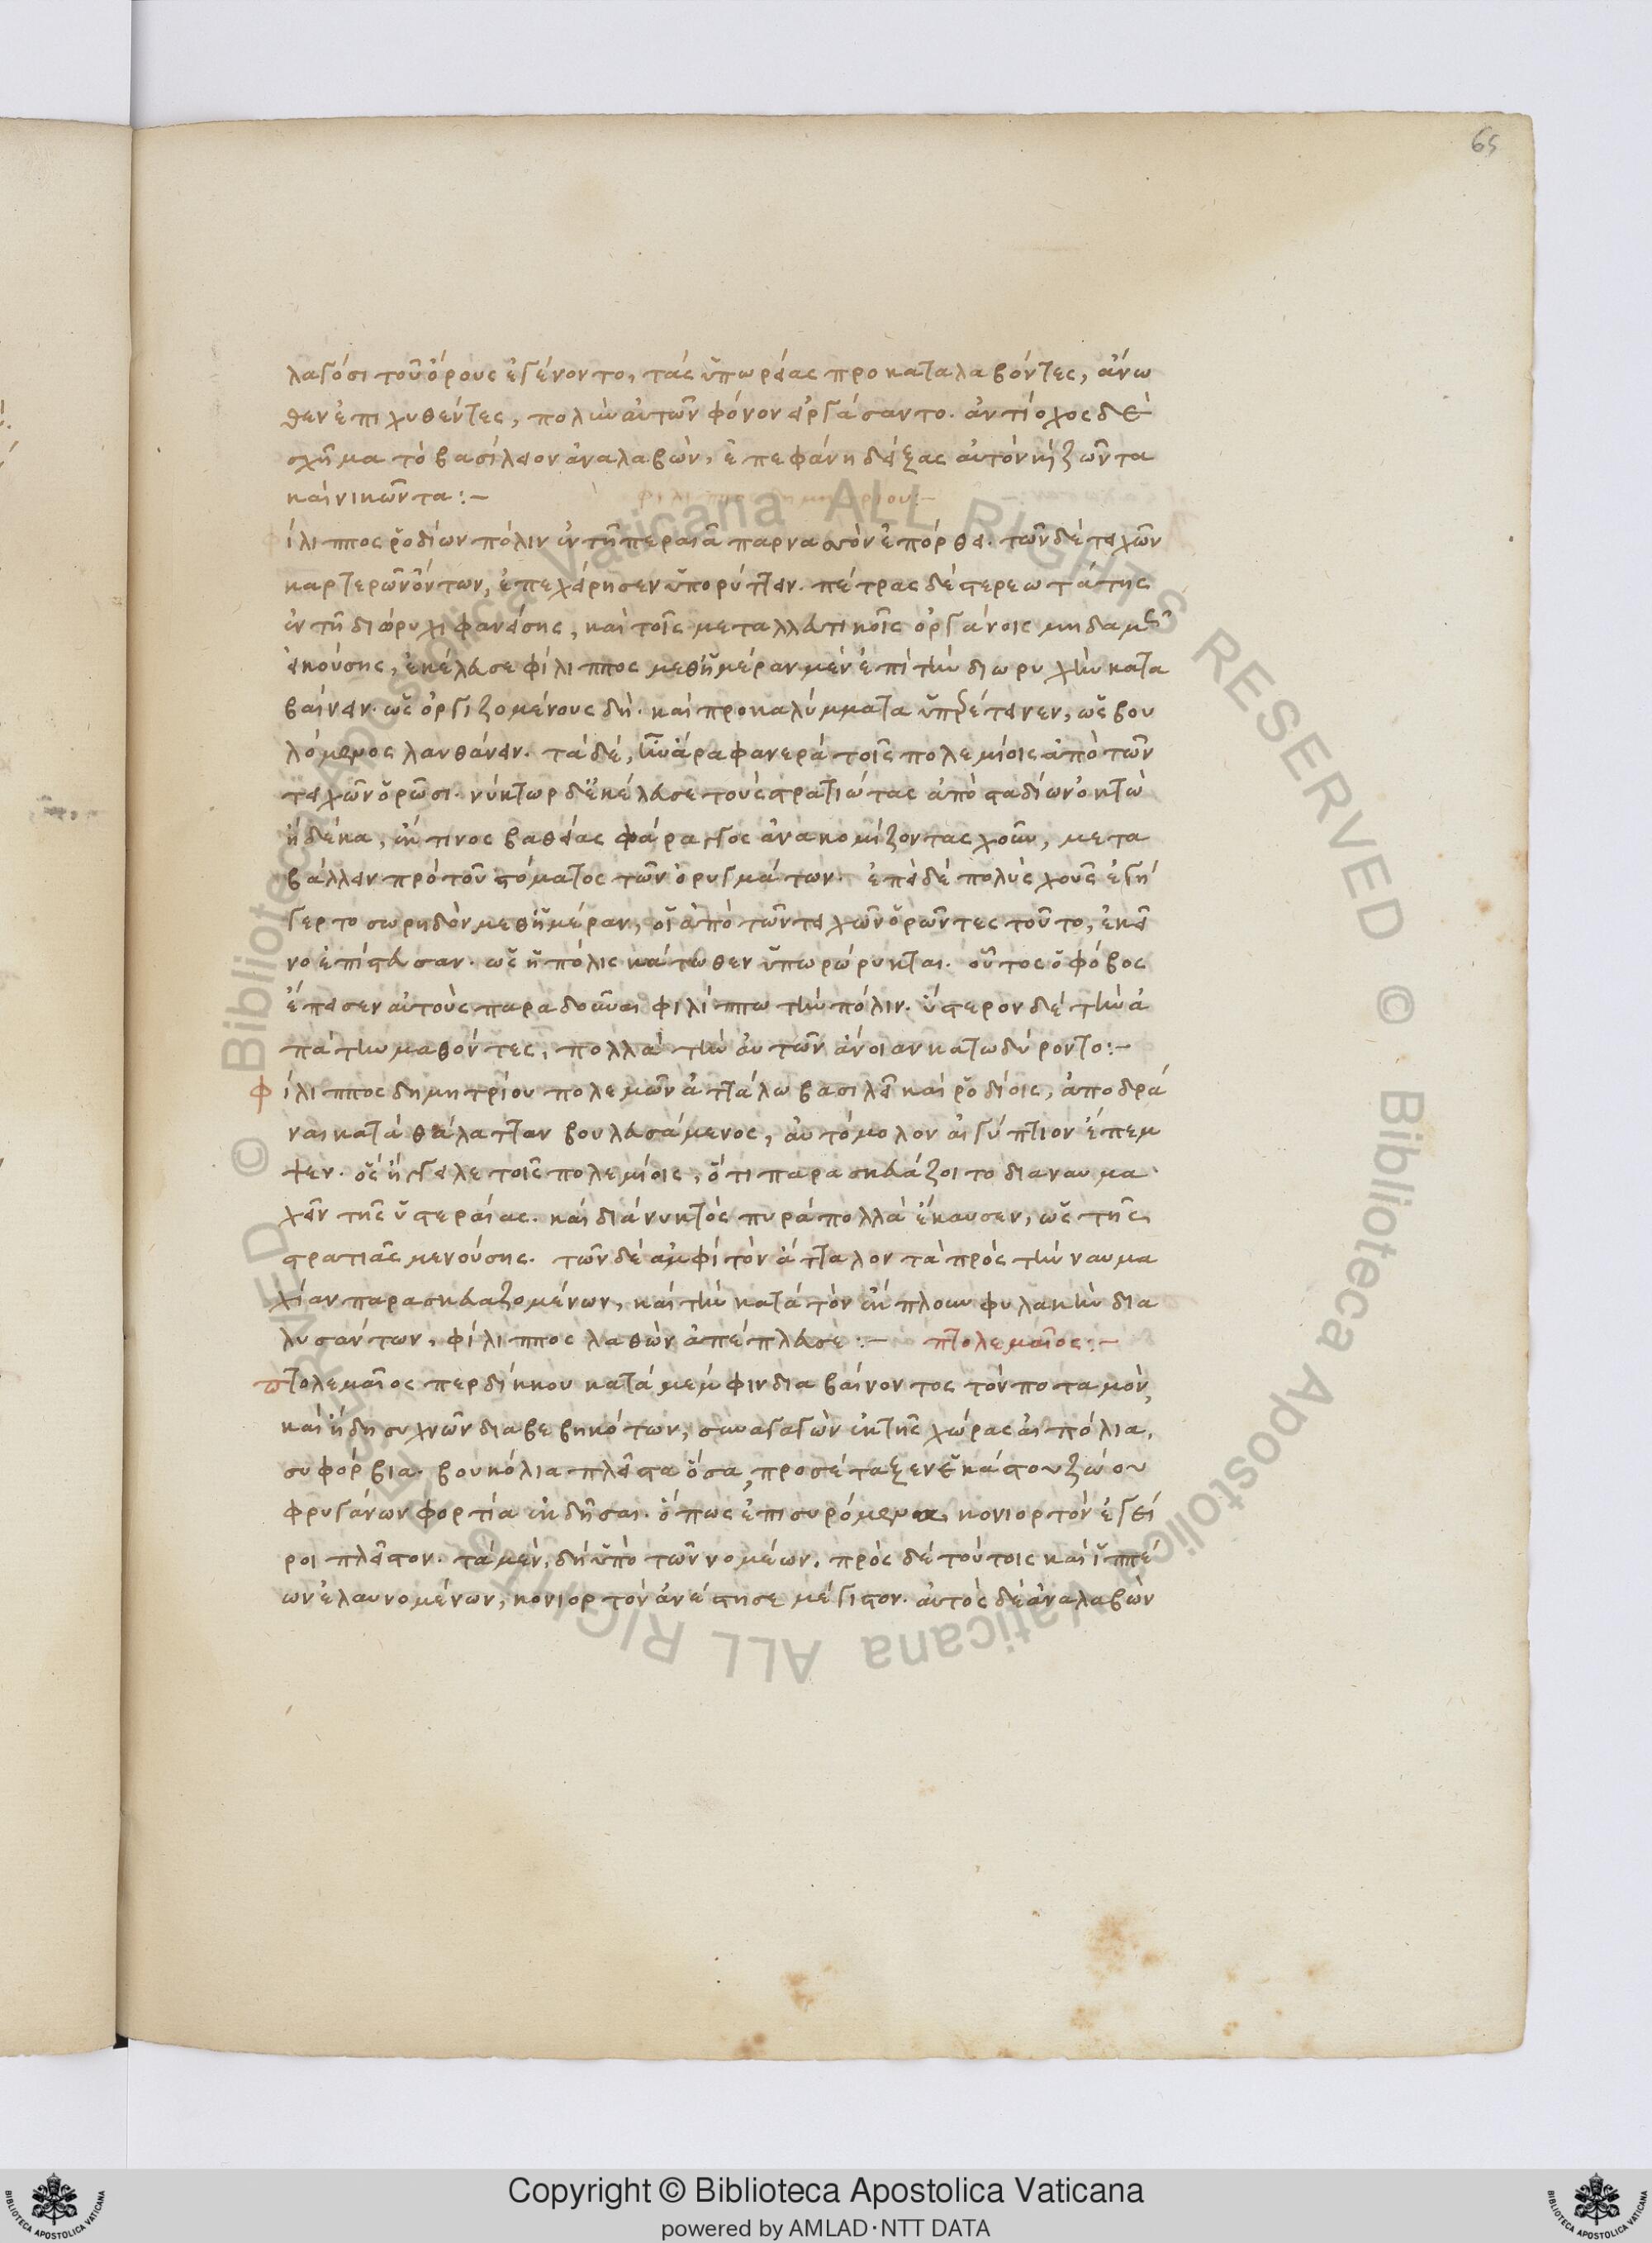 65
λαγόσι τοῦ ὄρους ἐγένοντο, τὰς ὑπωρείας προκαταλαβόντες, ἄνω
θεν ἐπιχυθέντες, πολὺν αὐτῶν φόνον εἰργάσαντο. ἀντίοχος δὲ
σχῆμα τὸ βασίλειον ἀναλαβὼν, ἐπεφάνη δείξας αὐτὸν καὶ ζῶντα
καὶ νικῶντα:- φιλιππος δημητριου:-
ίλιππος ῥοδίων πόλιν ἐν τῆ περαιᾶ παρνασὸν ἐπόρθει. τῶν δὲ τειχῶν
καρτερῶν ὄντων, ἐπεχείρησεν ὑπορύττειν. πέτρας δὲ στερεωτάτης
ἐν τῆ διώρυχι φανείσης, καὶ τοῖς μεταλλευτικοῖς ὀργάνοις μηδαμοῦ
εἰκούσης, ἐκέλευσε φίλιππος μεθ' ἡμέραν μὲν ἐπὶ τὴν διωρυχὴν κατα
βαίνειν. ὡς ὀργιζομένους δή. καὶ προκαλύμματα ὑπερέτεινεν, ὡς βου
λόμενος λανθάνειν. τὰ δὲ, ἦν ἄρα φανερὰ τοῖς πολεμίοις ἀπὸ τῶν
τειχῶν ὁρῶσι. νύκτωρ δ' ἐκέλευσε τοὺς στρατιώτας ἀπὸ σταδίων ὀκτὼ
ἢ δέκα, ἔκ τινος βαθείας φάραγγος ἀνακομίζοντας χοῦν, μετα
βάλλειν πρὸ τοῦ στόματος τῶν ὀρυγμάτων. ἐπεὶ δὲ πολὺς χοῦς ἐγή
γερτο σωρηδὸν μεθ' ἡμέραν, οἱ ἀπὸ τῶν τειχῶν ὁρῶντες τοῦτο, ἐκεῖ
νο ἐπίστευσαν. ὡς ἡ πόλις κάτωθεν ὑπωρώρυκται. οὗτος ὁ φόβος
ἔπεισεν αὐτοὺς παραδοῦναι φιλίππω τὴν πόλιν. ὕστερον δὲ τὴν ἀ
πάτην μαθόντες, πολλὰ τὴν αὐτῶν ἄνοιαν κατωδύροντο:-
Φίλιππος δημητρίου πολεμῶν ἀττάλω βασιλεῖ καὶ ῥοδίοις, ἀποδρᾶ
ναι κατὰ θάλατταν βουλευσάμενος, αὐτόμολον αἰγύπτιον ἔπεμ
ψεν. ὃς ἤγγειλε τοῖς πολεμίοις, ὅτι παρασκευάζοιτο διαναυμα
χεῖν τῆς ὑστεραίας. καὶ διὰ νυκτὸς πυρὰ πολλὰ ἔκαυσεν, ὡς τῆς
στρατιᾶς μενούσης. τῶν δὲ ἀμφὶ τὸν ἄτταλον τὰ πρὸς τὴν ναυμα
χίαν παρασκευαζομένων, καὶ τὴν κατὰ τὸν ἔκπλουν φυλακὴν δια
λυσάντων, φίλιππος λαθὼν ἀπέπλευσε:- πτολεμαῖος:-
Πτολεμαῖος περδίκκου κατὰ μέμφιν διαβαίνοντος τὸν ποταμὸν,
καὶ ἤδη συχνῶν διαβεβηκότων, συναγαγὼν ἐκ τῆς χώρας αἰπόλια,
συφόρβια. βουκόλια πλεῖστα ὅσα, προσέταξεν ἕκαστον ζώου
φρυγάνων φορτία ἐκδῆσαι. ὅπως ἐπισυρόμενα, κονιορτὸν ἐγεί
ροι πλεῖστον. τὰ μὲν, δὴ ὑπὸ τῶν νομέων, πρὸς δὲ τούτοις καὶ ἱππέ
ων ἐλαυνομένων, κονιορτὸν ἀνέστησε μέγιστον. αὐτὸς δὲ ἀναλαβὼν
© Biblioteca Apostolica Vaticana ALL RIGHTS RESERVED © Biblioteca Apostolica Vaticana ALL RIGHTS RESERVED
Copyright © Biblioteca Apostolica Vaticana
powered by AMLAD·NTT DATA
BIBLIOTECA APOSTOLICA VATICANA
BIBLIOTECA APOSTOLICA VATICANA